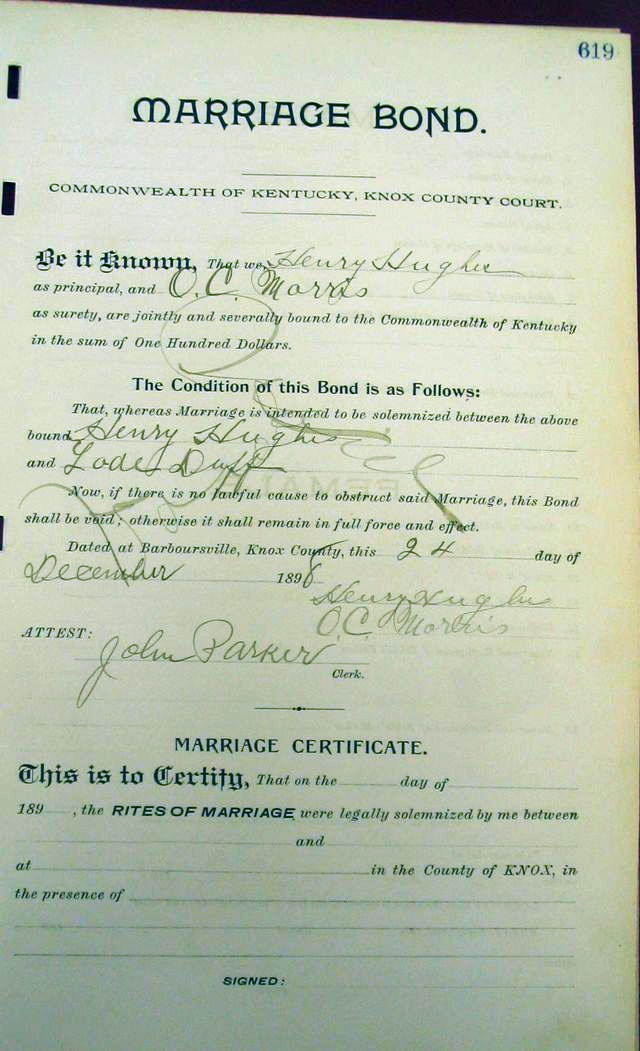 619
MARRIAGE BOND.
COMMONWEALTH OF KENTUCKY, KNOX COUNTY COURT.
Be it Known, That we, Henry Hughes
as principal, and O. C. Morris
as surety, are jointly and severally bound to the Commonwealth of Kentucky
in the sum of One Hundred Dollars.
The Condition of this Bond is as Follows:
That, whereas Marriage is intended to be solemnized between the above
bound Henry Hughes
and Lode Duff
Now, if there is no lawful cause to obstruct said Marriage, this Bond
shall be void; otherwise it shall remain in full force and effect.
Dated at Barboursville, Knox County, this 24 day of
December 1898
Henry Hughes
O.C. Morris
ATTEST:
John Parker
Clerk.
MARRIAGE CERTIFICATE.
This is to Certify, That on the day of
189 , the RITES OF MARRIAGE were legally solemnized by me between
and
at in the County of KNOX, in
the presence of
SIGNED: